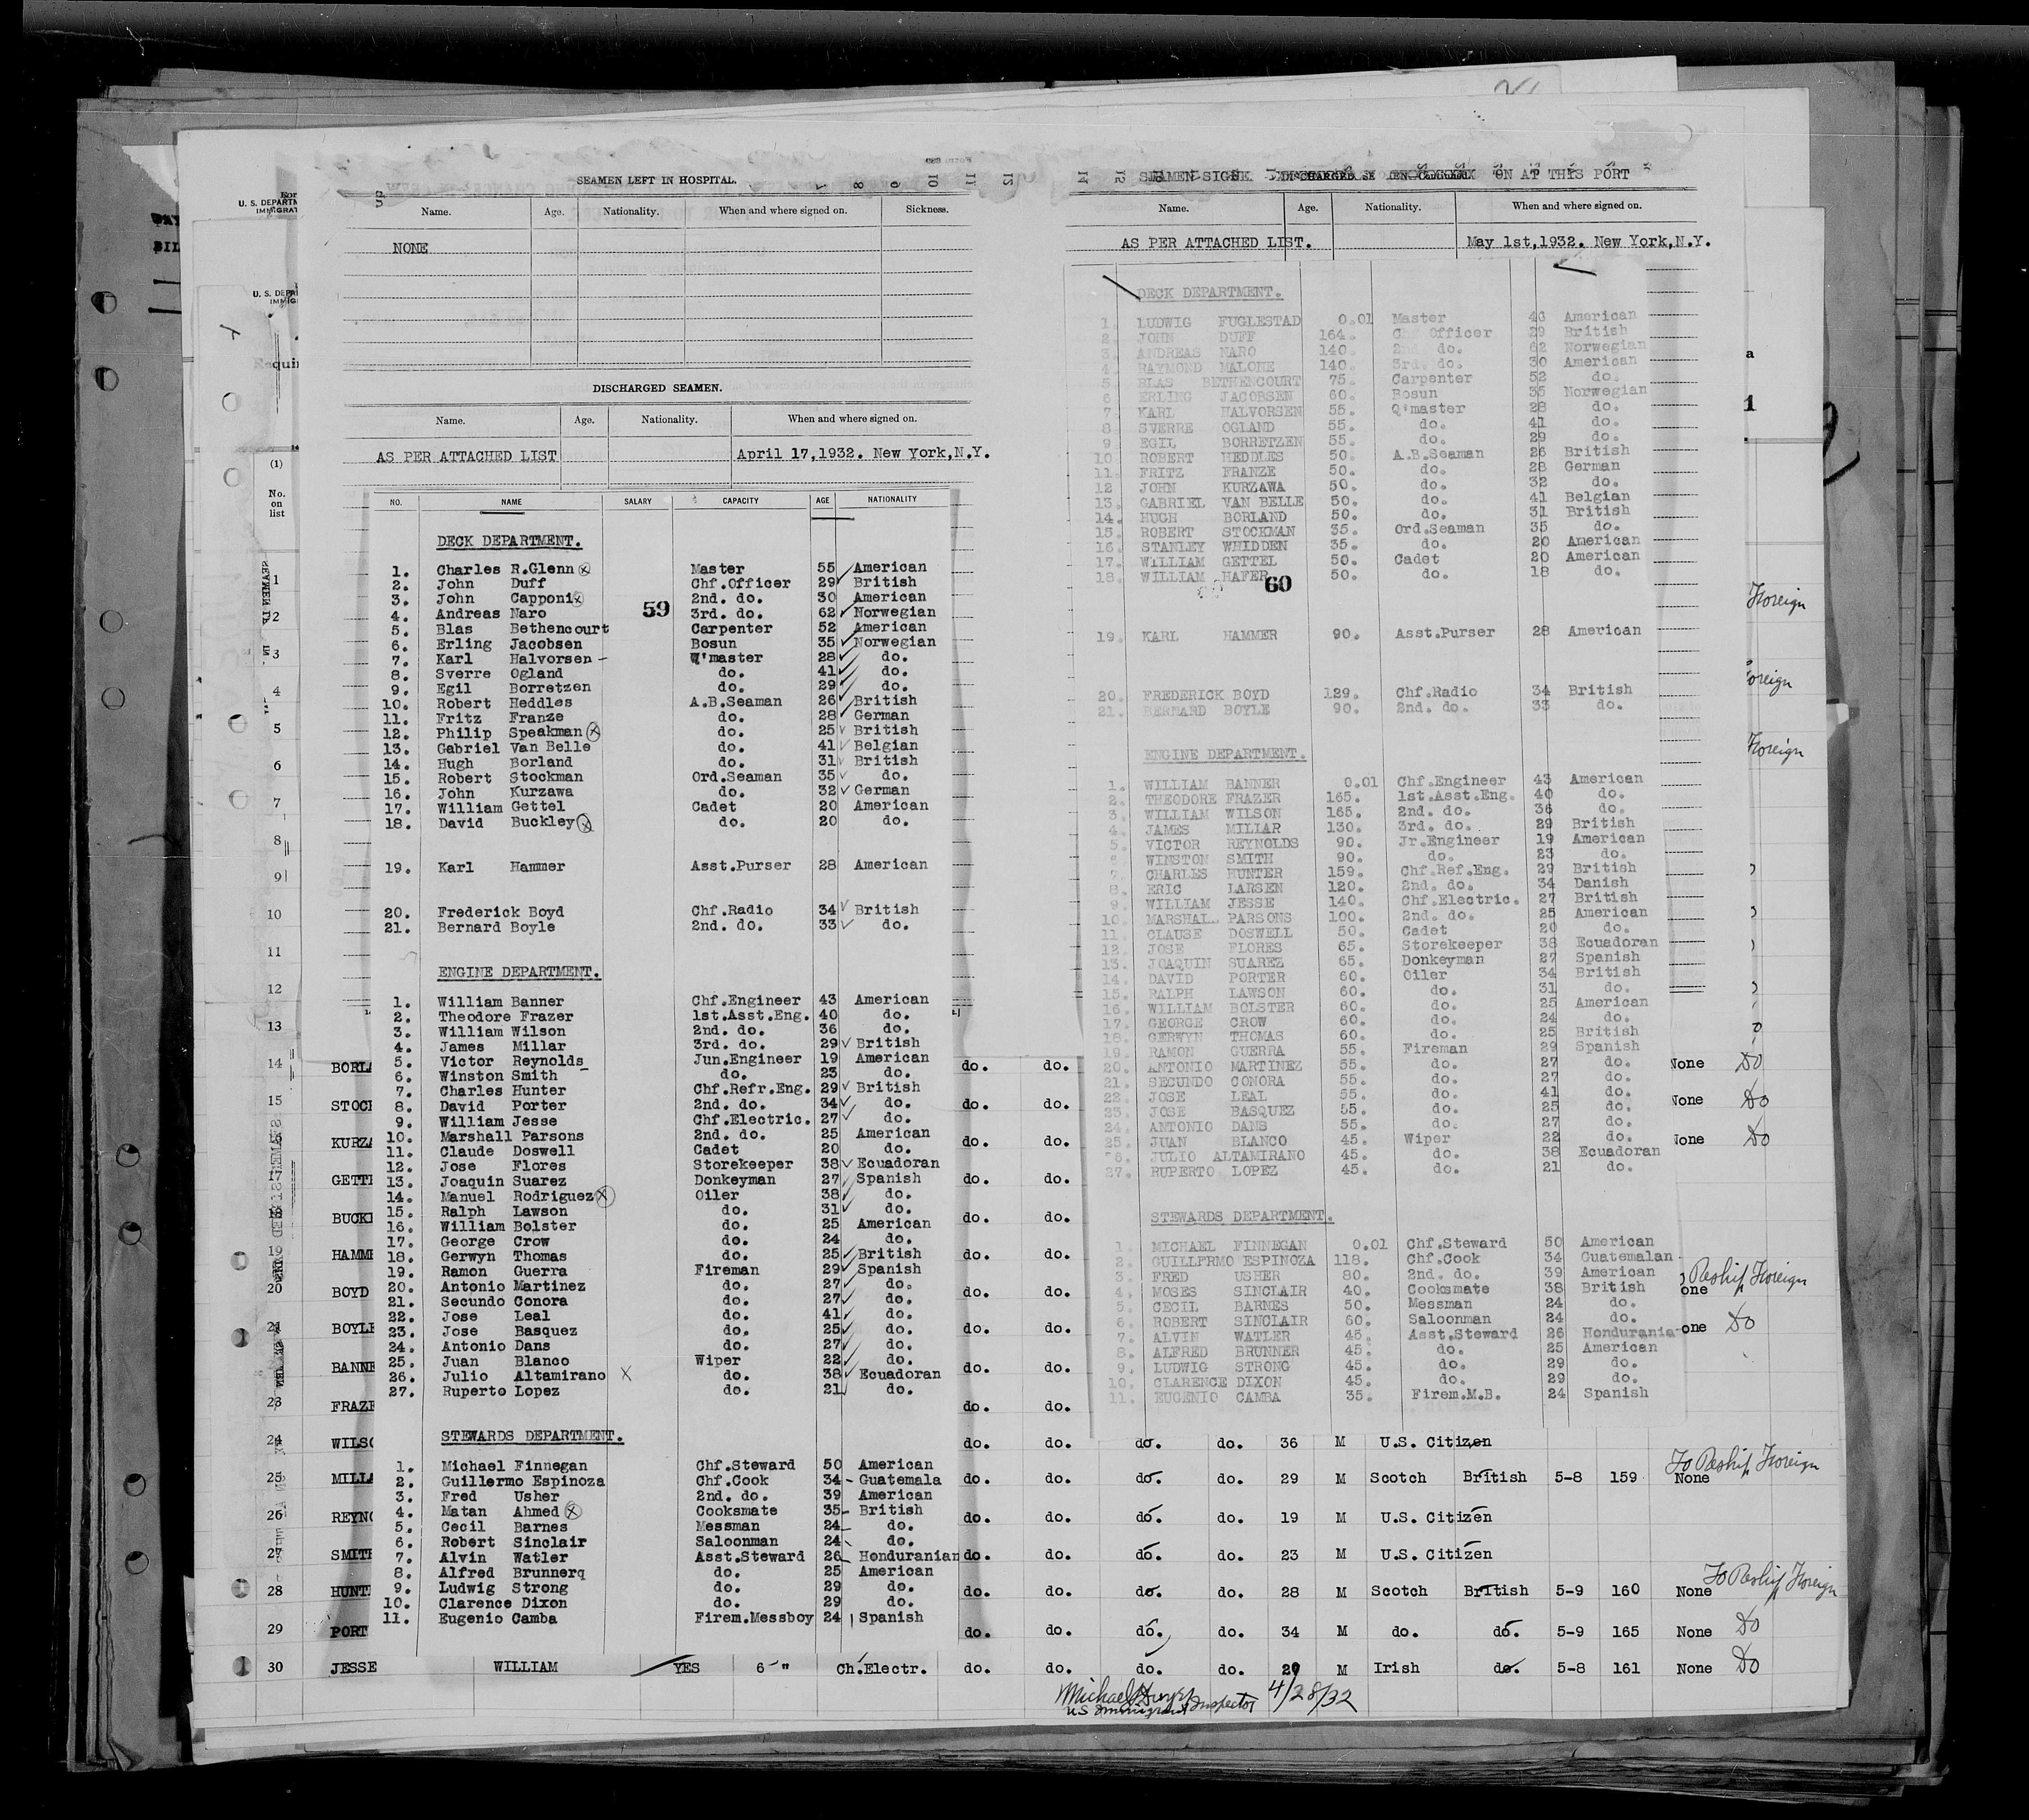 SEAMEN LEFT IN HOSPITAL.
Name. Age. Nationality. When and where signed on. Sickness.
NONE
DISCHARGED SEAMEN.
Name. Age. Nationality. When and where signed on.
AS PER ATTACHED LIST April 17,1932. New York,N.Y.
NO. NAME SALARY CAPACITY AGE NATIONALITY
DECK DEPARTMENT.
1. Charles R.Glenn Master 55 American
2. John Duff Chf.Officer 29 British
3. John Capponi 2nd. do. 30 American
59
4. Andreas Naro 3rd. do. 62 Norwegian
5. Blas Bethencourt Carpenter 52 American
6. Erling Jacobsen Bosun 35 Norwegian
7. Karl Halvorsen Q'master 28 do.
8. Sverre Ogland do. 41 do.
9. Egil Borretzen do. 29 do.
10. Robert Heddles A.B.Seaman 26 British
11. Fritz Franze do. 28 German
12. Philip Speakman do. 25 British
13. Gabriel Van Belle do. 41 Belgian
14. Hugh Borland do. 31 British
15. Robert Stockman Ord.Seaman 35 do.
16. John Kurzawa do. 32 German
17. William Gettel Cadet 20 American
18. David Buckley do. 20 do.
19. Karl Hammer Asst.Purser 28 American
20. Frederick Boyd Chf.Radio 34 British
21. Bernard Boyle 2nd. do. 33 do.
ENGINE DEPARTMENT.
1. William Banner Chf.Engineer 43 American
2. Theodore Frazer 1st.Asst.Eng. 40 do.
3. William Wilson 2nd. do. 36 do.
4. James Millar 3rd. do. 29 British
5. Victor Reynolds Jun.Engineer 19 American
6. Winston Smith do. 23 do.
7. Charles Hunter Chf.Refr.Eng. 29 British
8. David Porter 2nd. do. 34 do.
9. William Jesse Chf.Electric. 27 do.
10. Marshall Parsons 2nd. do. 25 American
11. Claude Doswell Cadet 20 do.
12. Jose Flores Storekeeper 38 Ecuadoran
13. Joaquin Suarez Donkeyman 27 Spanish
14. Manuel Rodriguez Oiler 38 do.
15. Ralph Lawson do. 31 do.
16. William Bolster do. 25 American
17. George Crow do. 24 do.
18. Gerwyn Thomas do. 25 British
19. Ramon Guerra Fireman 29 Spanish
20. Antonio Martinez do. 27 do.
21. Secundo Conora do. 27 do.
22. Jose Leal do. 41 do.
23. Jose Basquez do. 25 do.
24. Antonio Dans do. 27 do.
25. Juan Blanco Wiper 22 do.
26. Julio Altamirano do. 38 Ecuadoran
27. Ruperto Lopez do. 21 do.
STEWARDS DEPARTMENT.
1. Michael Finnegan Chf.Steward 50 American
2. Guillermo Espinoza Chf.Cook 34 Guatemala
3. Fred Usher 2nd. do. 39 American
4. Matan Ahmed Cooksmate 35 British
5. Cecil Barnes Messman 24 do.
6. Robert Sinclair Saloonman 24 do.
7. Alvin Watler Asst.Steward 26 Honduranian
8. Alfred Brunnerq do. 25 American
9. Ludwig Strong do. 29 do.
10. Clarence Dixon do. 29 do.
11. Eugenio Camba Firem.Messboy 24 Spanish
SEAMEN SIGNE ON AT THIS PORT
Name. Age. Nationality. When and where signed on.
AS PER ATTACHED LIST. May 1st,1932. New York,N.Y.
DECK DEPARTMENT.
1. LUDWIG FUGLESTAD 0.01 Master 46 American
2. JOHN DUFF 164. Chf Officer 29 British
3. ANDREAS NARO 140. 2nd. do. 62 Norwegian
4. RAYMOND MALONE 140. 3rd. do. 30 American
5. BLAS BETHENCOURT 75. Carpenter 52 do.
6 ERLING JACOBSEN 60. Bosun 35 Norwegian
7. KARL HALVORSEN 55. Q'master 28 do.
8. SVERRE OGLAND 55. do. 41 do.
9. EGIL BORRETZEN 55. do. 29 do.
10 ROBERT HEDDLES 50. A.B.Seaman 26 British
11. FRITZ FRANZE 50. do. 28 German
12 JOHN KURZAWA 50. do. 32 do.
13. GABRIEL VAN BELLE 50. do. 41 Belgian
14. HUGH BORLAND 50. do. 31 British
15. ROBERT STOCKMAN 35. Ord.Seaman 35 do.
16. STANLEY WHIDDEN 35. do. 20 American
17. WILLIAM GETTEL 50. Cadet 20 American
18. WILLIAM HAFER 50. do. 18 do.
60
19. KARL HAMMER 90. Asst.Purser 28 American
20. FREDERICK BOYD 129. Chf.Radio 34 British
21. BERNARD BOYLE 90. 2nd. do. 33 do.
ENGINE DEPARTMENT.
1. WILLIAM BANNER 0.01 Chf.Engineer 43 American
2. THEODORE FRAZER 165. 1st.Asst.Eng. 40 do.
3. WILLIAM WILSON 165. 2nd. do. 36 do.
4. JAMES MILLAR 130. 3rd. do. 29 British
5. VICTOR REYNOLDS 90. Jr.Engineer 19 American
6. WINSTON SMITH 90. do. 23 do.
7. CHARLES HUNTER 159. Chf.Ref.Eng. 29 British
8. ERIC LARSEN 120. 2nd. do. 34 Danish
9. WILLIAM JESSE 140. Chf.Electric. 27 British
10. MARSHAL. PARSONS 100. 2nd. do. 25 American
11. CLAUSE DOSWELL 50. Cadet 20 do.
12. JOSE FLORES 65. Storekeeper 38 Ecuadoran
13. JOAQUIN SUAREZ 65. Donkeyman 27 Spanish
14. DAVID PORTER 60. Oiler 34 British
15. RALPH LAWSON 60. do. 31 do.
16. WILLIAM BOLSTER 60. do. 25 American
17. GEORGE CROW 60. do. 24 do.
18. GERWYN THOMAS 60. do. 25 British
19. RAMON GUERRA 55. Fireman 29 Spanish
20. ANTONIO MARTINEZ 55. do. 27 do.
21. SECUNDO CONORA 55. do. 27 do.
22. JOSE LEAL 55. do. 41 do.
23. JOSE BASQUEZ 55. do. 25 do.
24. ANTONIO DANS 55. do. 27 do.
25. JUAN BLANCO 45. Wiper 22 do.
26. JULIO ALTAMIRANO 45. do. 38 Ecuadoran
27. RUPERTO LOPEZ 45. do. 21 do.
STEWARDS DEPARTMENT.
1. MICHAEL FINNEGAN 0.01 Chf.Steward 50 American
2. GUILLPRMO ESPINOZA 118. Chf.Cook 34 Guatemalan
3. FRED USHER 80. 2nd. do. 39 American
4. MOSES SINCLAIR 40. Cooksmate 38 British
5. CECIL BARNES 50. Messman 24 do.
6. ROBERT SINCLAIR 60. Saloonman 24 do.
7. ALVIN WATLER 45. Asst.Steward 26 Hondurania
8. ALFRED BRUNNER 45. do. 25 American
9. LUDWIG STRONG 45. do. 29 do.
10. CLARENCE DIXON 45. do. 29 do.
11. EUGENIO CAMBA 35. Firem.M.B. 24 Spanish
(1)
No. on list
1
2
3
4
5
6
7
8
9
10
11
12
13
14 BORLA do. do. None Do
15 STOCK do. do. None Do
16 KURZA do. do. None Do
17 GETTE do. do.
18 BUCKL do. do.
19 HAMME do. do.
20 BOYD do. do. one To Reship Foreign
21 BOYLE do. do. one Do
BANNE do. do.
23 FRAZE do. do.
24 WILSO do. do. do. do. 36 M U.S. Citizen
25 MILLA do. do. do. do. 29 M Scotch British 5-8 159 None To Reship Foreign
26 REYNO do. do. do. do. 19 M U.S. Citizen
27 SMITH do. do. do. do. 23 M U.S. Citizen
28 HUNT do. do. do. do. 28 M Scotch British 5-9 160 None To Reship Foreign
29 PORT do. do. do. do. 34 M do. do. 5-9 165 None Do
30 JESSE WILLIAM YES 6 " Ch.Electr. do. do. do. do. 29 M Irish do. 5-8 161 None Do
Foreign
Foreign
Foreign
US Immigrant Inspector 4/28/32